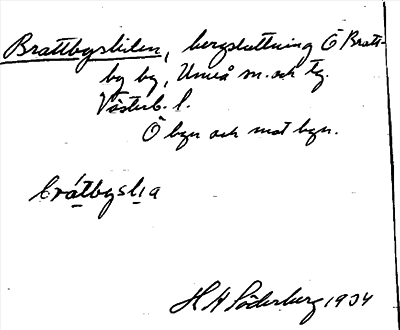 Brattbyslilen, bergsluttning Ö Bratt-
by by, Umeå sn. och tg.
Västerb. l.
Ö byn och mot byn.
bråtbyslia
H A Söderberg 1934